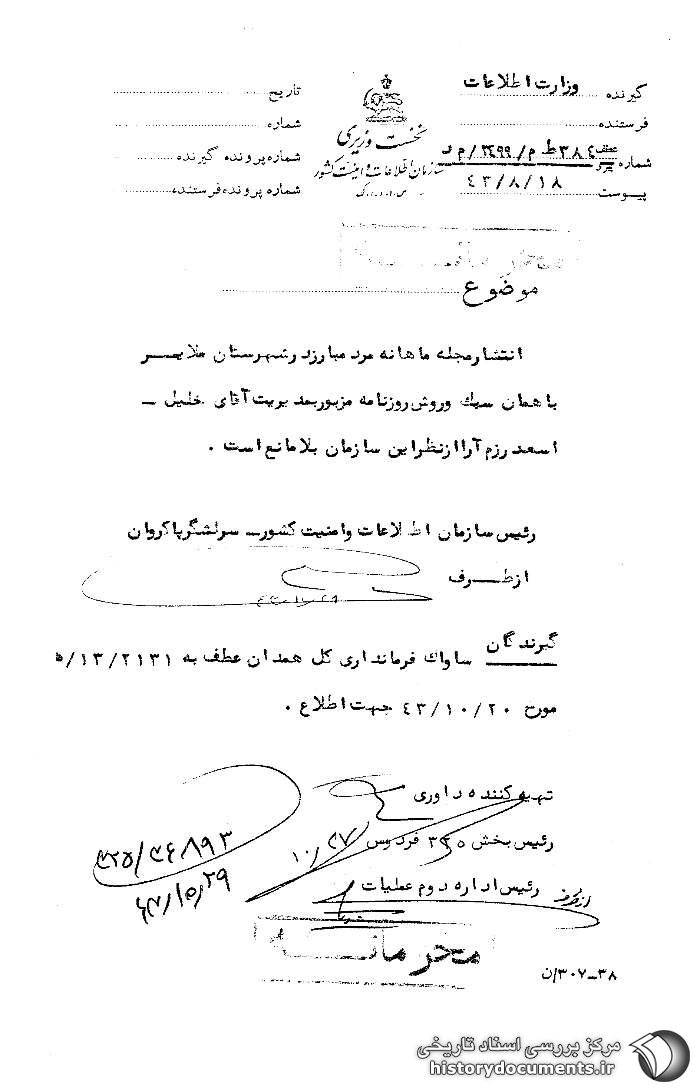 گیرنده وزارت اطلاعات
فرستنده
شماره عطف ۳۸٤ ط م/۲٤۹۹/م د
پیوست ٤۳/۸/۱۸
نخست وزیری
سازمان اطلاعات و امنیت کشور
تاریخ
شماره
شماره پرونده گیرنده
شماره پرونده فرستنده
موضوع
انتشار مجله ماهانه مرد مبارز در شهرستان ملایر
با همان سبک و روش روزنامه مزبور بمدیریت آقای خلیل –
اسعد رزم آرا از نظر این سازمان بلامانع است .
رئیس سازمان اطلاعات و امنیت کشور – سرلشگر پاکروان
از طرف
گیرندگان
ساواک فرمانداری کل همدان عطف به ۲۱۳۱/۱۳/ه
مورخ ٤۳/۱۰/۲۰ جهت اطلاع .
تهیه کننده داوری
رئیس بخش ۳۲۵ فردوس ۱۰/۲۷
رئیس اداره دوم عملیات از طرف
۳۲۵/۳۶۸۹۳
۴۳/۱۰/۲۹
محرمانه
۳۸–۳۰۷/ن
مرکز بررسی اسناد تاریخی
historydocuments.ir